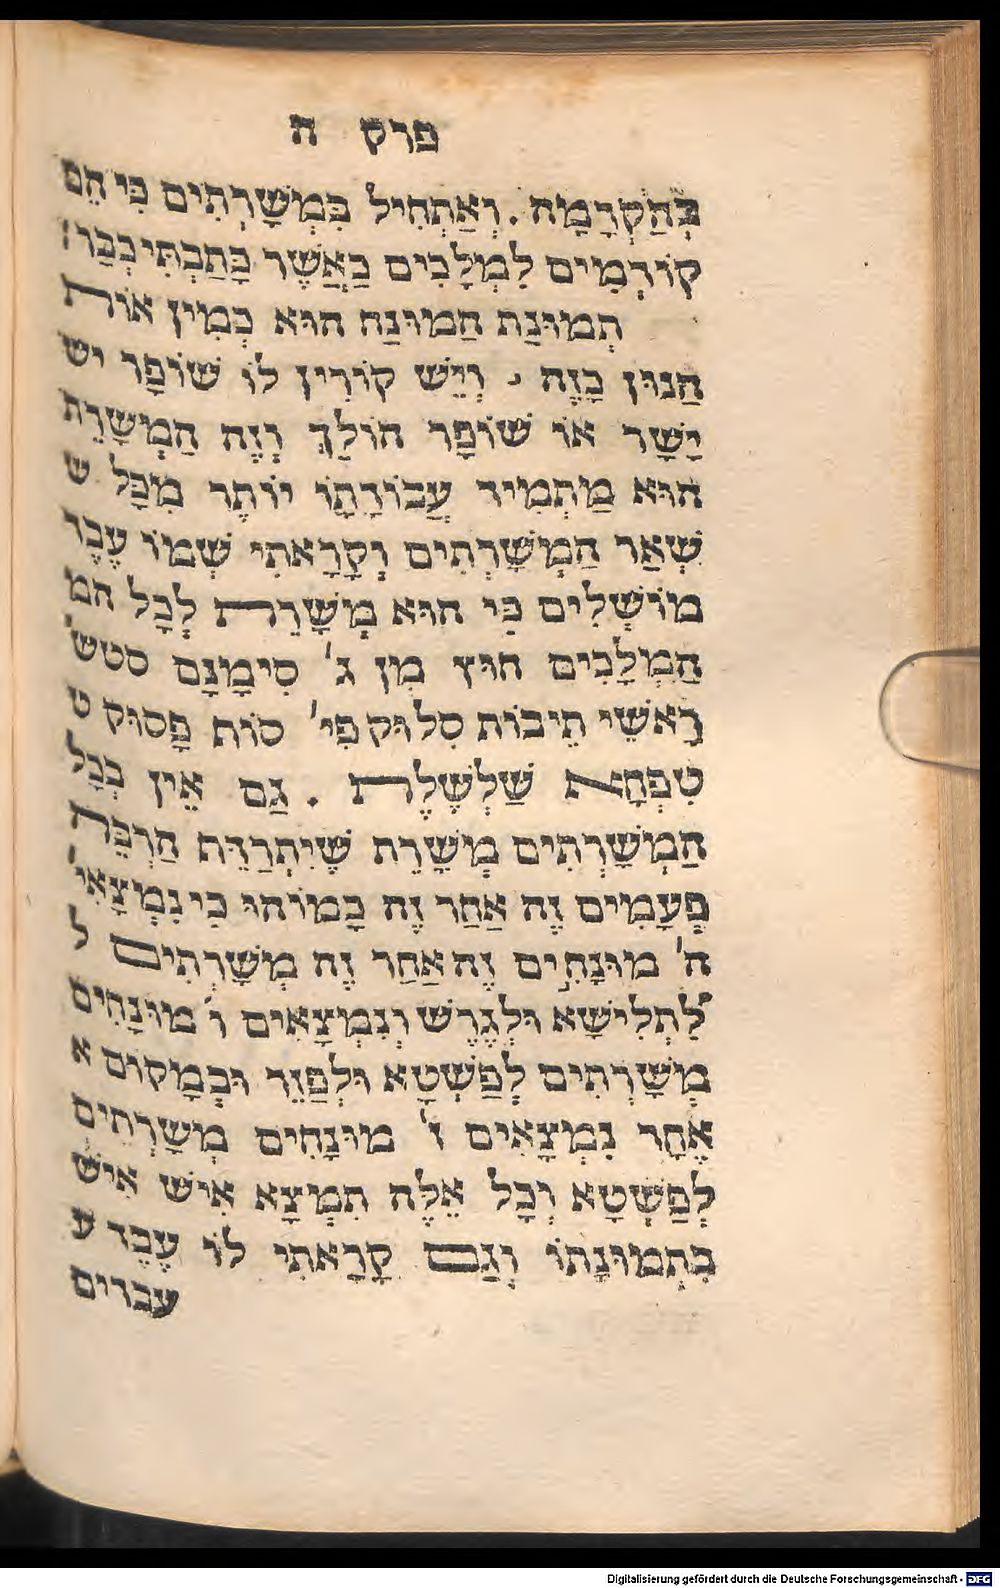 פרק ה
בְּהַקְדָמָה. וְאַתְחִיל בִּמְשָׁרְתִים כִּי הֵם
קוֹדְמִים לִמְלָכִים כַּאֲשֶׁר כָּתַבְתִּי כְּבָר:
תְמוּנַת הַמוּנַח הוּא כְּמִין אוֹת
הַנוּן כָּזֶה ׳ וְיֵשׁ קוֹרִין לוֹ שׁוֹפָר יש
יָשָׁר אוֹ שׁוֹפָר הוֹלֵךְ וְזֶה הַמְשָׁרֵת
הוּא מַתְמִיד עֲבוֹדָתוֹ יוֹתֶר מִכָּל ש
שְׁאַר הַמְשָׁרְתִים וְקָרָאתִי שְׁמוֹ עֶבֶד
מוֹשְׁלִים כִּי הוּא מְשָׁרֵת לְכָל המ
הַמְלָכִים חוּץ מִן ג׳ סִימָנָם סטש׳
רָאשֵׁי תֵיבוֹת סִלוּק פִּי׳ סוֹת פָּסוּק ט
טִפְחָא שַׁלְשֶׁלֶת . גַם אֵין בְּכָל
הַמְשָׁרְתִים מְשָׁרֵת שֶׁיִתְרַדֵּת הַרְבֵּה
פְּעָמִים זֶה אַחַר זֶה כָּמוֹהוּ כִּי נִמְצָאִי׳
ה׳ מוּנָחִים זֶה אַחַר זֶה מְשָׁרְתִים ל
לַתְלִישָׁא וּלְגֶרֶשׁ וְנִמְצָאִים ו׳ מוּנָחִים
מְשָׁרְתִים לְפַשְׁטָא וּלְפַזֵר וּבְמָקוֹם א
אֶחָד נִמְצָאִים ז׳ מוּנָחִים מְשָׁרְתִים
לְפַשְׁטָא וְכָל אֵלֶה תִמְצָא אִישׁ אִישׁ
בִּתְמוּנָתוֹ וְגַם קָרָאתִי לוֹ עֶבֶד ע
עבדים
Digitalisierung gefördert durch die Deutsche Forschungsgemeinschaft - DFG